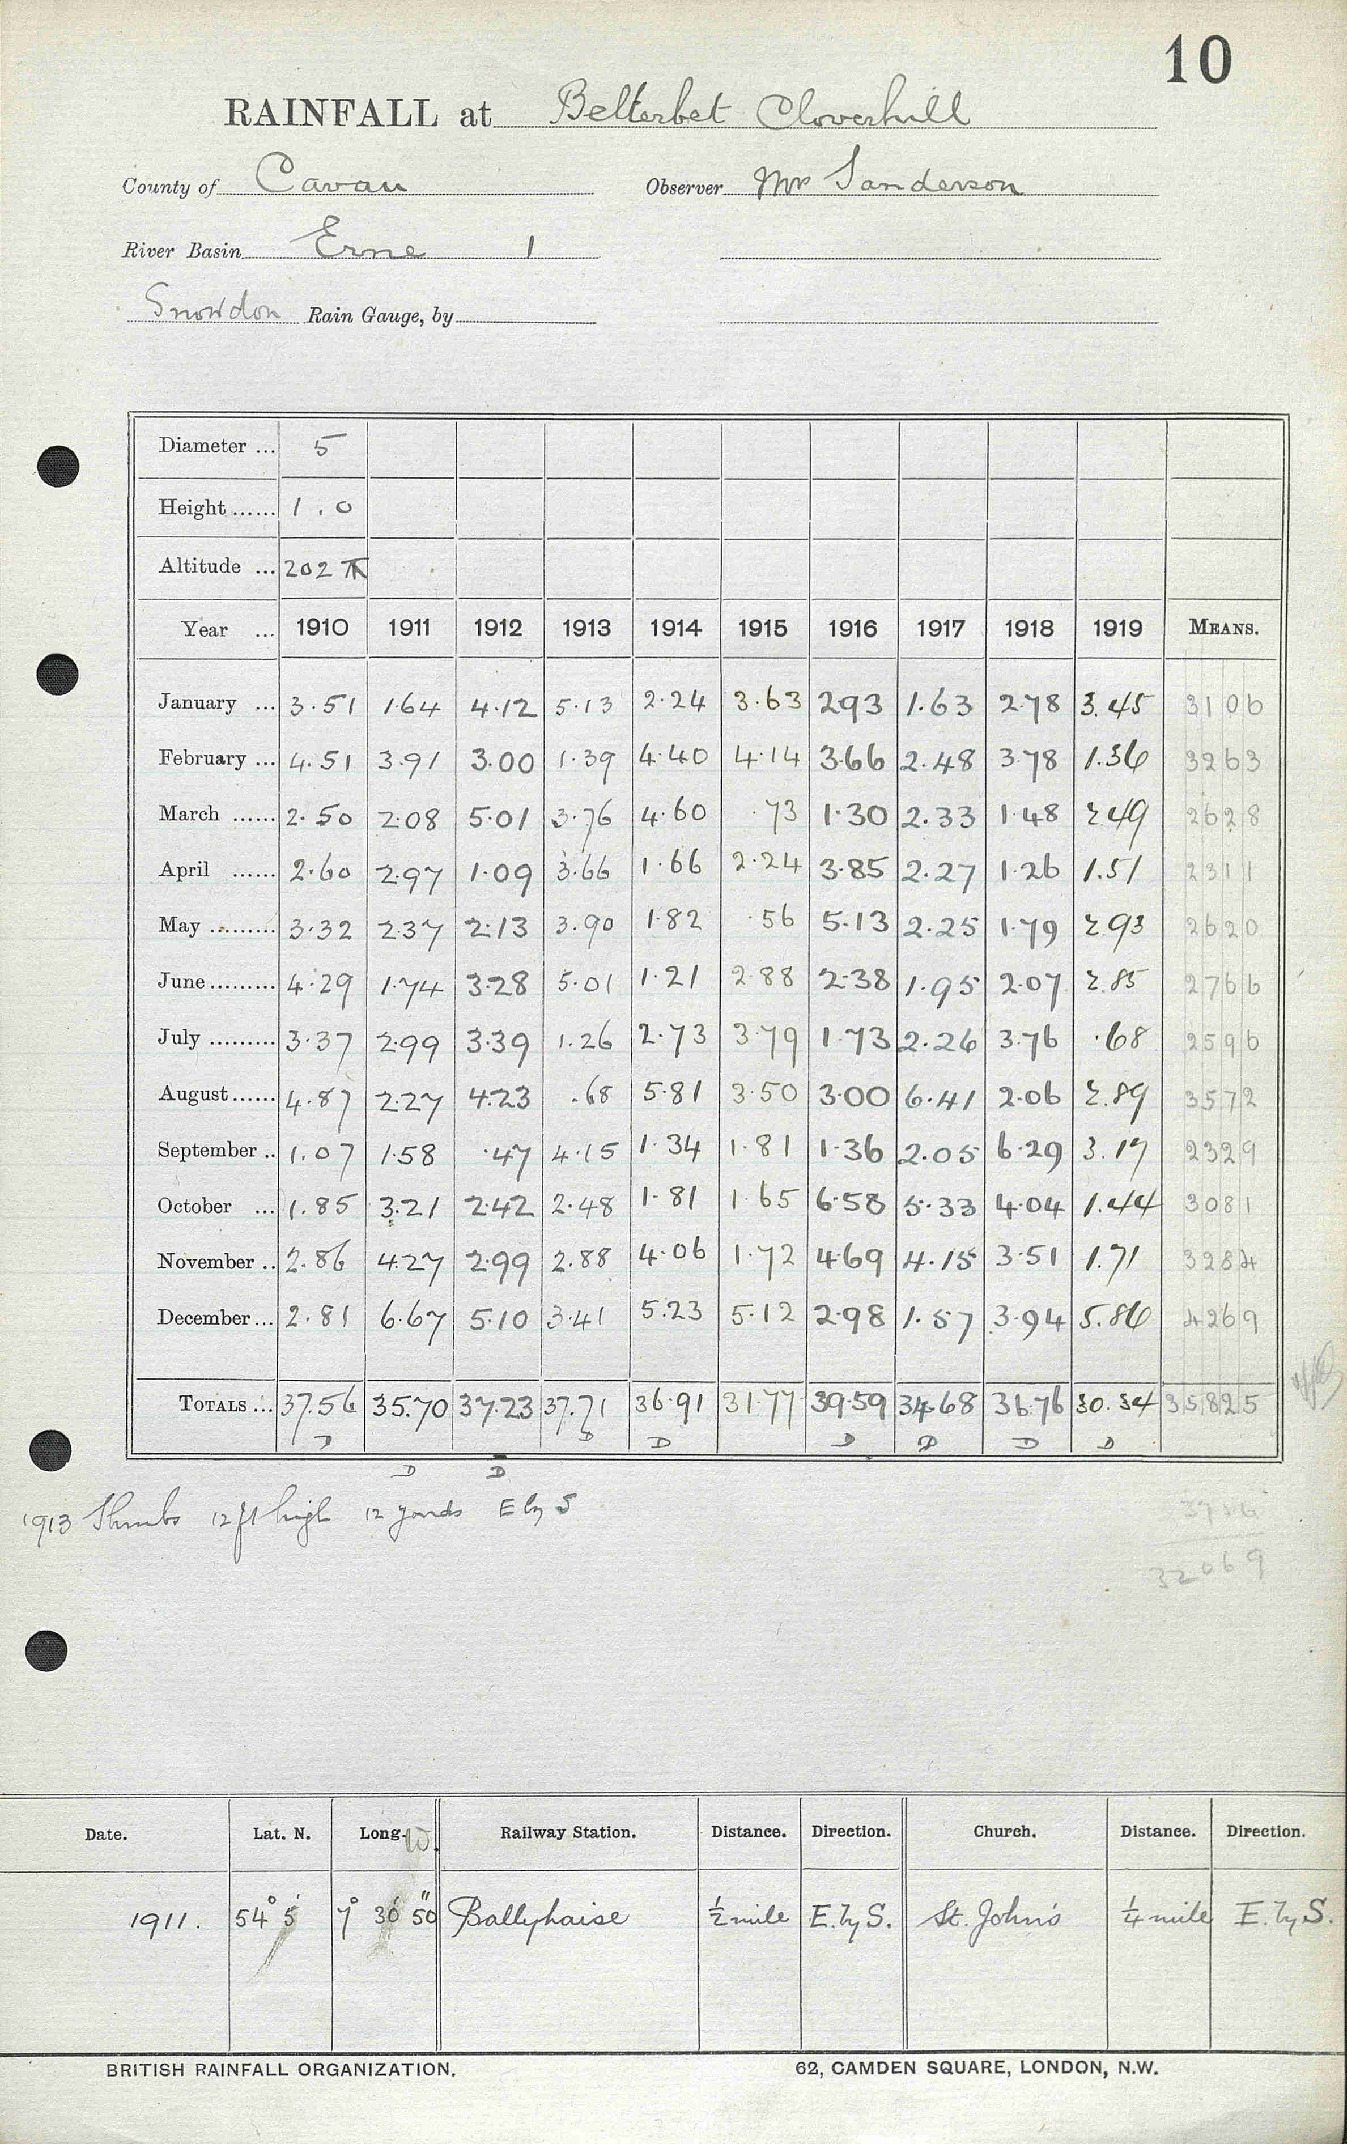 10
RAINFALL at Belterbet Cloverhill
County of Cavan Observer Mrs Sanderson
River Basin Erne 1
Snowdon Rain Gauge, by
Diameter ... 5
Height ...... 1.0
Altitude ... 202
Year ... 1910 1911 1912 1913 1914 1915 1916 1917 1918 1919 MEANS.
January ... 3.51 1.64 4.12 5.13 2.24 3.63 2.93 1.63 2.78 3.45 3106
February ... 4.51 3.91 3.00 1.39 4.40 4.14 3.66 2.48 3.78 1.36 3263
March ...... 2.50 2.08 5.01 3.76 4.60 .73 1.30 2.33 1.48 2.49 2628
April ...... 2.60 2.97 1.09 3.66 1.66 2.24 3.85 2.27 1.26 1.51 2311
May ......... 3.32 2.37 2.13 3.90 1.82 .56 5.13 2.25 1.79 2.93 2620
June ......... 4.29 1.74 3.28 5.01 1.21 2.88 2.38 1.95 2.07 2.85 2766
July ......... 3.37 2.99 3.39 1.26 2.73 3.79 1.73 2.26 3.76 .68 2596
August ...... 4.87 2.27 4.23 .68 5.81 3.50 3.00 6.41 2.06 2.89 3572
September .. 1.07 1.58 .47 4.15 1.34 1.81 1.36 2.05 6.29 3.17 2329
October ... 1.85 3.21 2.42 2.48 1.81 1.65 6.58 5.33 4.04 1.44 3081
November .. 2.86 4.27 2.99 2.88 4.06 1.72 4.69 4.15 3.51 1.71 3284
December ... 2.81 6.67 5.10 3.41 5.23 5.12 2.98 1.57 3.94 5.86 4269
TOTALS ... 37.56 35.70 37.23 37.71 36.91 31.77 39.59 34.68 36.76 30.34 35825
D D D D D D D
D D
1913 Shrubs 12 ft high 12 yards E by S
32069
Date. Lat. N. Long. W. Railway Station. Distance. Direction. Church. Distance. Direction.
1911. 54° 5' 7° 30' 50" Ballyhaise ½ mile E. by S. St. John's ¼ mile E. by S.
BRITISH RAINFALL ORGANIZATION. 62, CAMDEN SQUARE, LONDON, N.W.